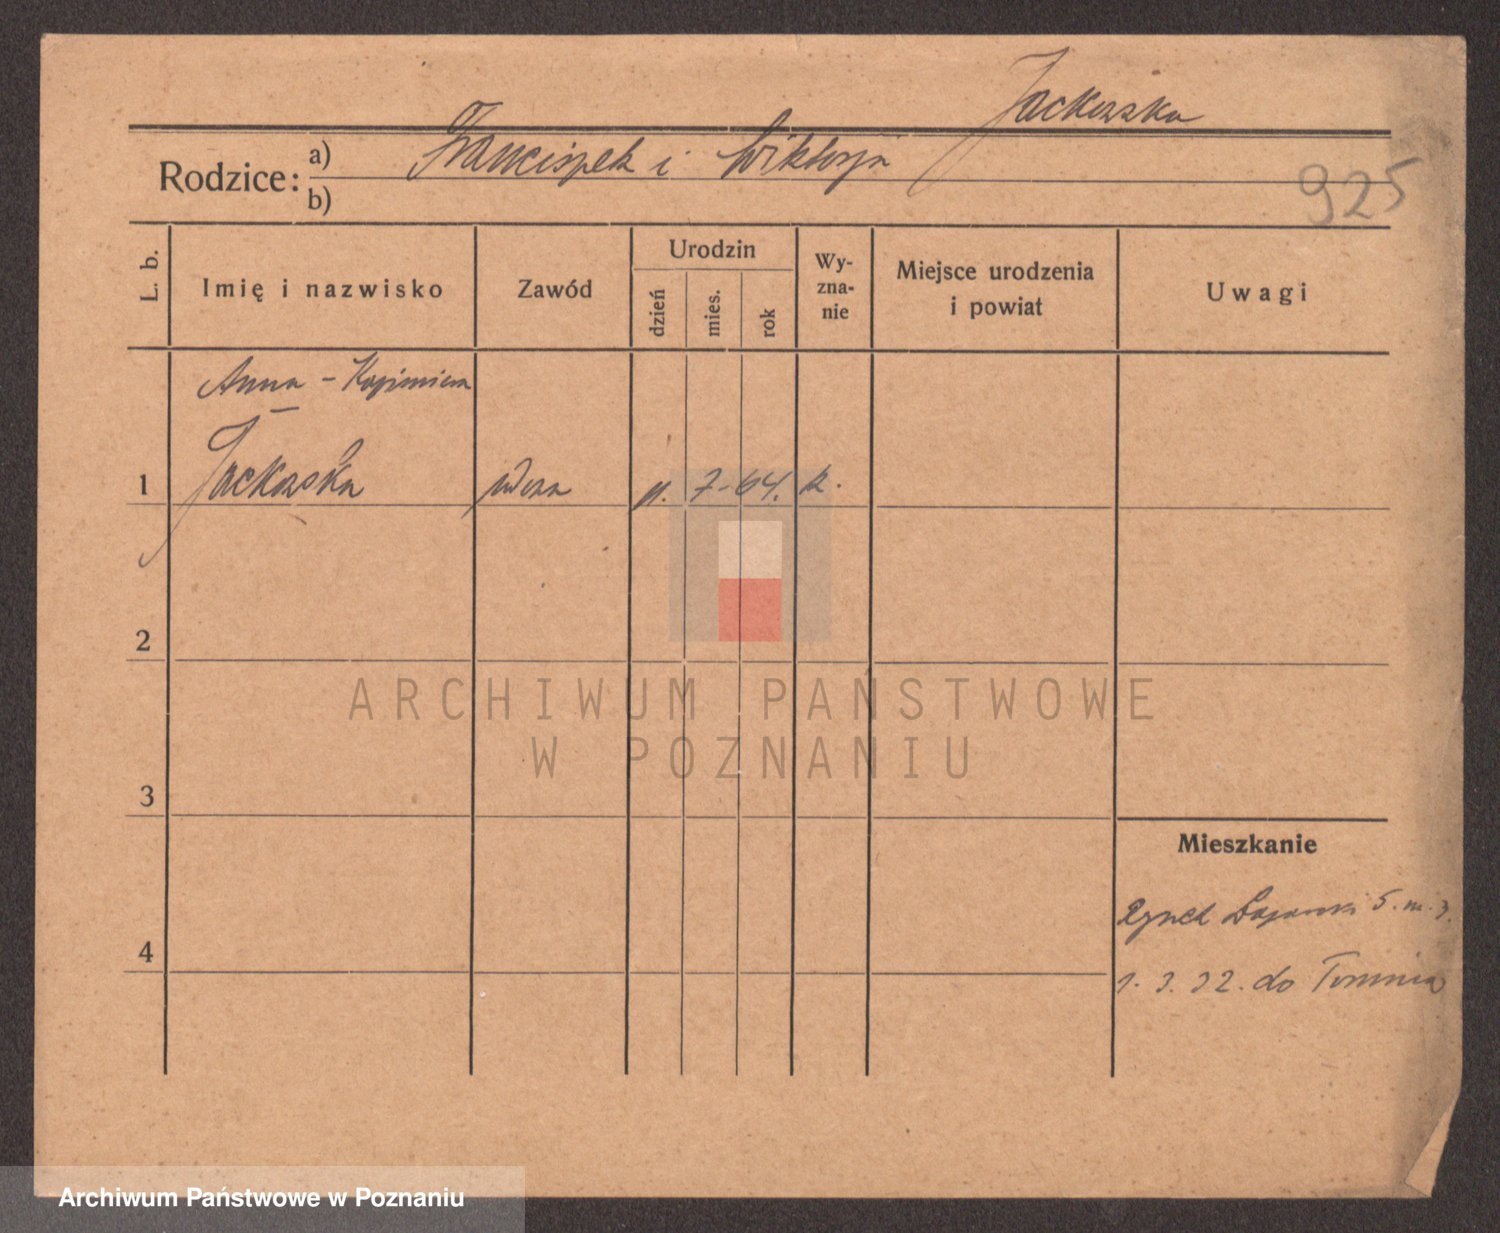 Jackowska
Rodzice: a) Franciszek i Wiktorja
b)
925
L. b.
Imię i nazwisko
Zawód
Urodzin
dzień
mies.
rok
Wy-
zna-
nie
Miejsce urodzenia
i powiat
Uwagi
Anna - Kazimiera
1 Jackowska wdowa 7-64. k.
2
3
4
Mieszkanie
Rynek 5. m. 3.
1. 3. 32. do Torunia
ARCHIWUM PAŃSTWOWE
W POZNANIU
Archiwum Państwowe w Poznaniu